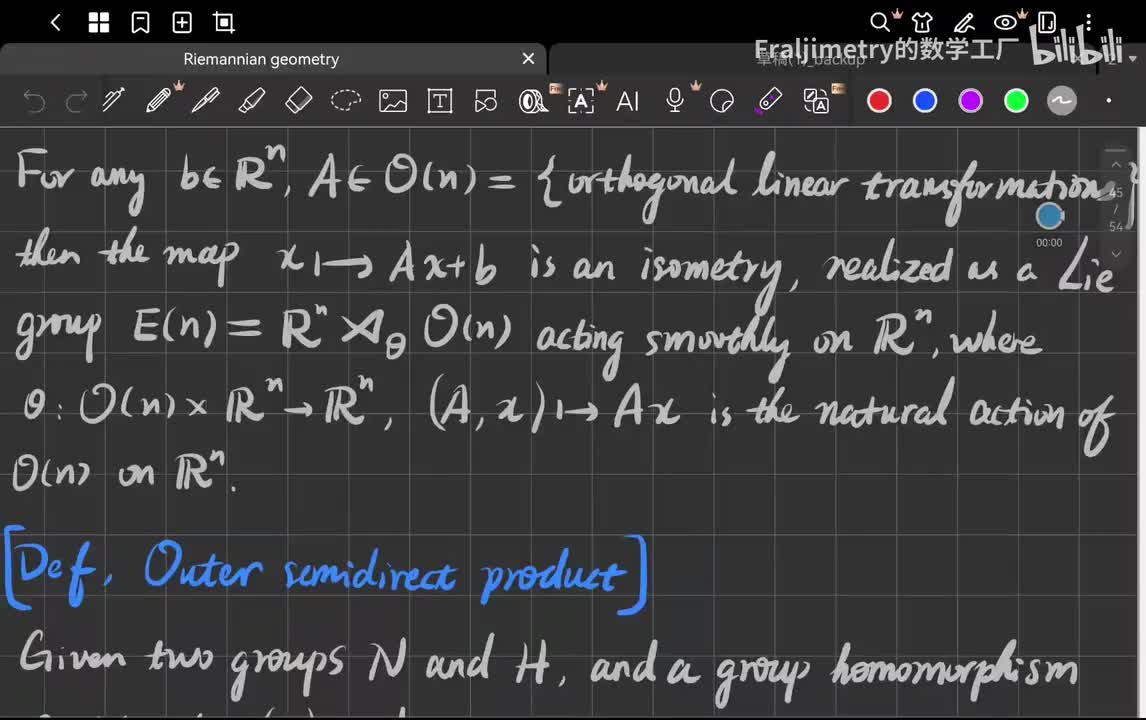 Fraljimetry的数学工厂 bilibili
Riemannian geometry
草稿(1)_backup
For any b∈ℝⁿ, A∈O(n) = {orthogonal linear transformation}
45
/
54
00:00
then the map x ↦ Ax+b is an isometry, realized as a Lie
group E(n) = ℝⁿ ⋊_θ O(n) acting smoothly on ℝⁿ, where
θ: O(n) × ℝⁿ → ℝⁿ, (A, x) ↦ Ax is the natural action of
O(n) on ℝⁿ.
[Def, Outer semidirect product]
Given two groups N and H, and a group homomorphism